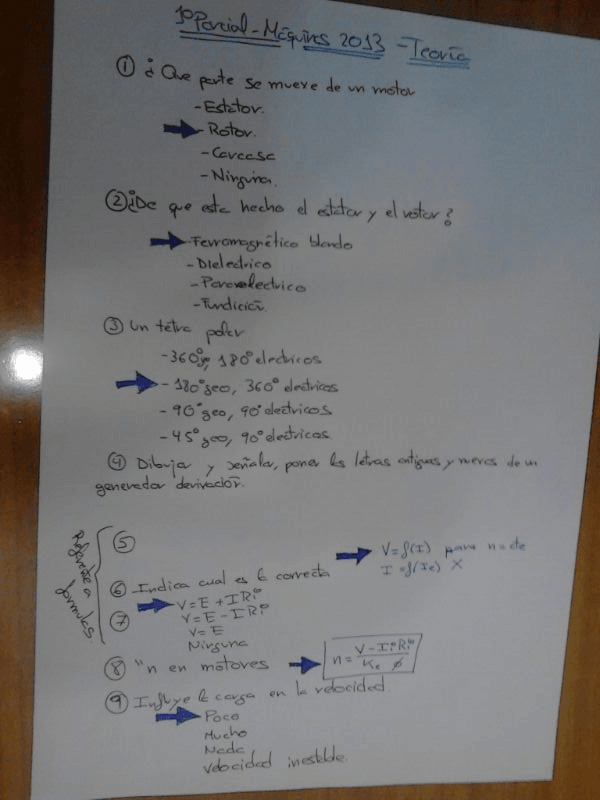 1º Parcial - Máquinas 2013 - Teoría
① ¿Que parte se mueve de un motor
- Estator.
- Rotor.
- Carcasa
- Ninguna.
② ¿De que esta hecho el estator y el rotor?
- Ferromagnético blando
- Dielectrico
- Paraelectrico
- Fundición.
③ Un tetra polar
- 360º geo, 180º electricos
- 180º geo, 360º electricos
- 90º geo, 90º electricos
- 45º geo, 90º electricos
④ Dibujar y señalar, poner las letras antiguas y nuevas de un
generador derivación.
Referente a
formulas.
⑤
V=f(I) para n=cte
I=f(Ie) X
⑥ Indica cual es la correcta
⑦
V=E+IRi
V=E-IRi
V=E
Ninguna
⑧ "n en motores
n = (V-Ii Ri) / (Ke φ)
⑨ Influye la carga en la velocidad
Poco
Mucho
Nada
Velocidad inestable.